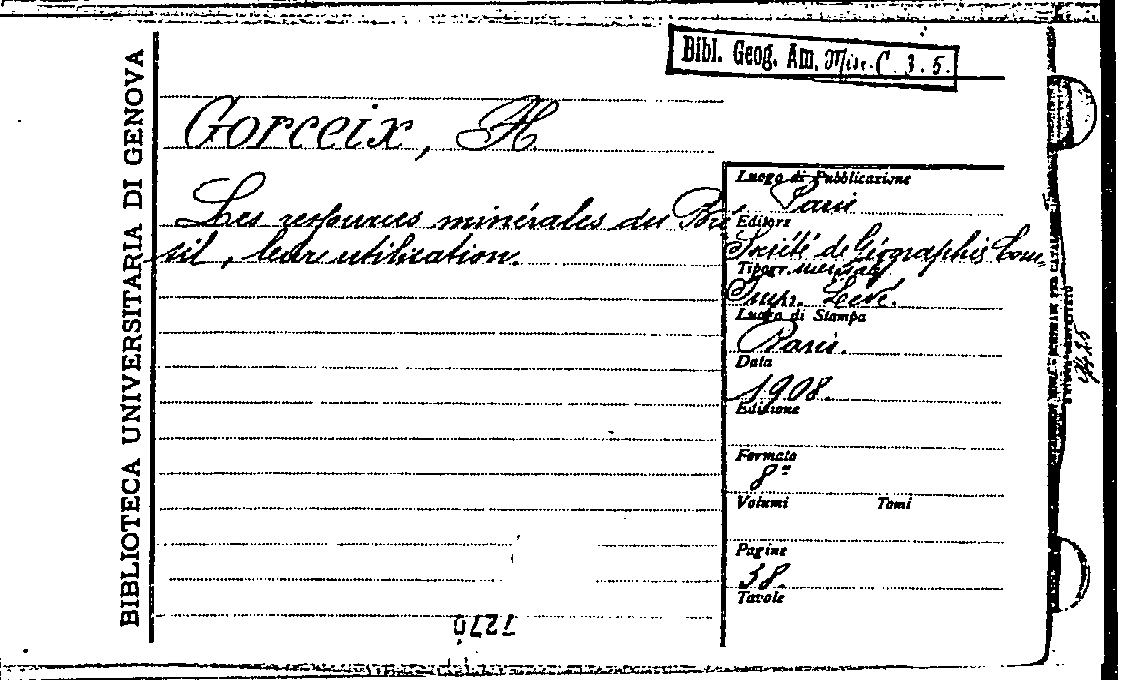 BIBLIOTECA UNIVERSITARIA DI GENOVA
Bibl. Geog. Am. Misc. C. 3. 5.
Gorceix, H
Les ressources minérales du Bré
sil, leur utilisation.
Luogo di Pubblicazione
Paris
Editore
Société de Géographie Com-
Tipogr. merciale
Impr. Levé.
Luogo di Stampa
Paris.
Data
1908.
Edizione
Formato
8º
Volumi Tomi
Pagine
38.
Tavole
7270